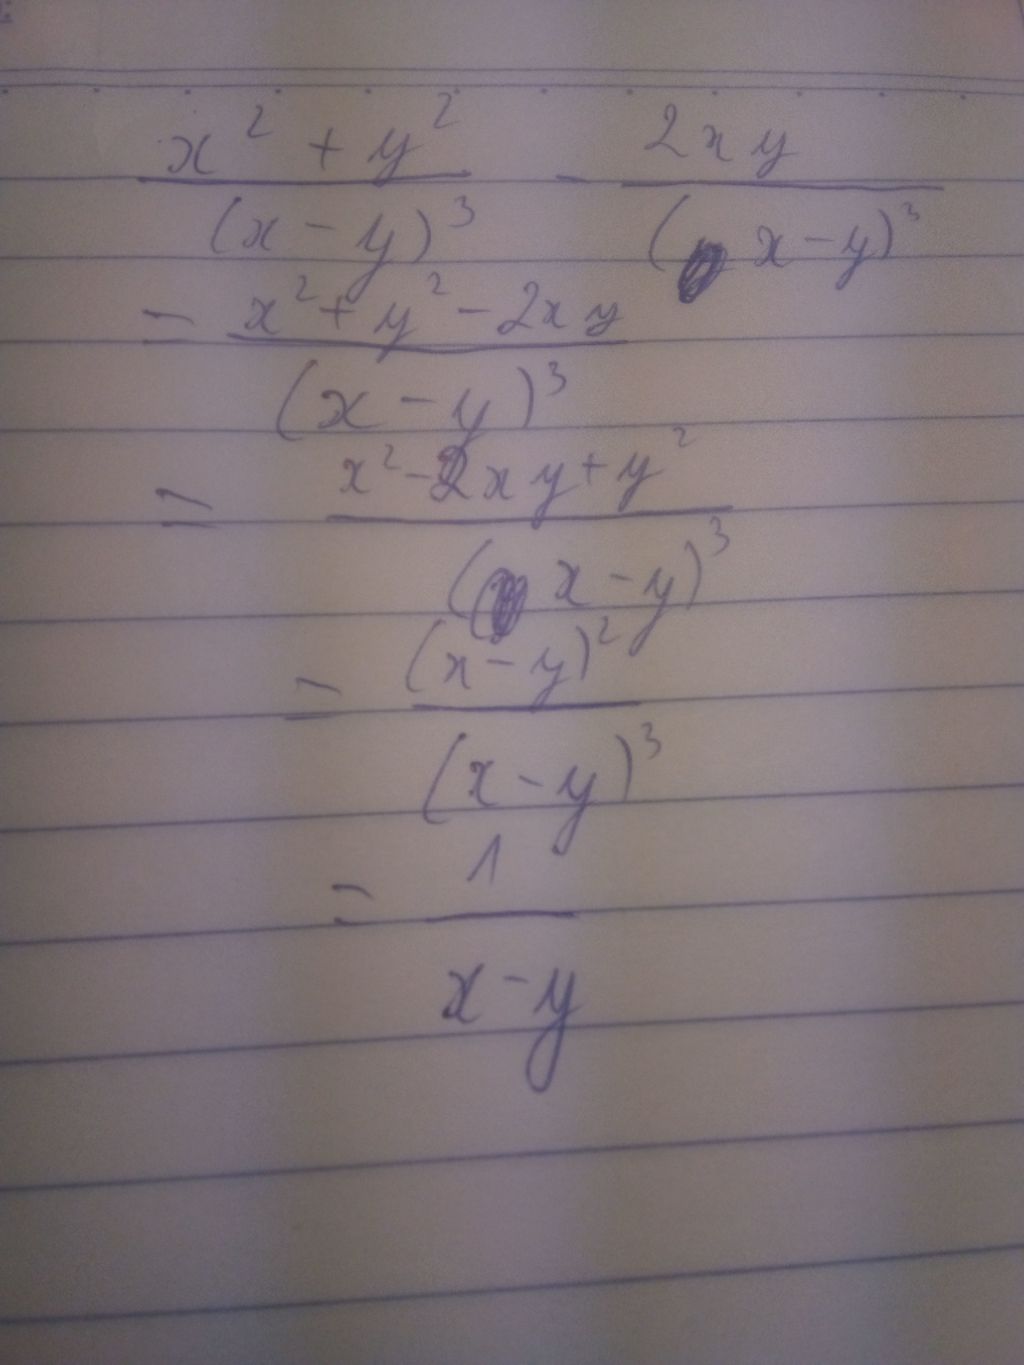 x² + y² / (x - y)³ - 2xy / (x - y)³
= x² + y² - 2xy / (x - y)³
= x² - 2xy + y² / (x - y)³
= (x - y)² / (x - y)³
= 1 / x - y